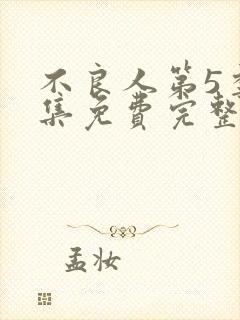 不良人第5季
集免费完整
孟妆